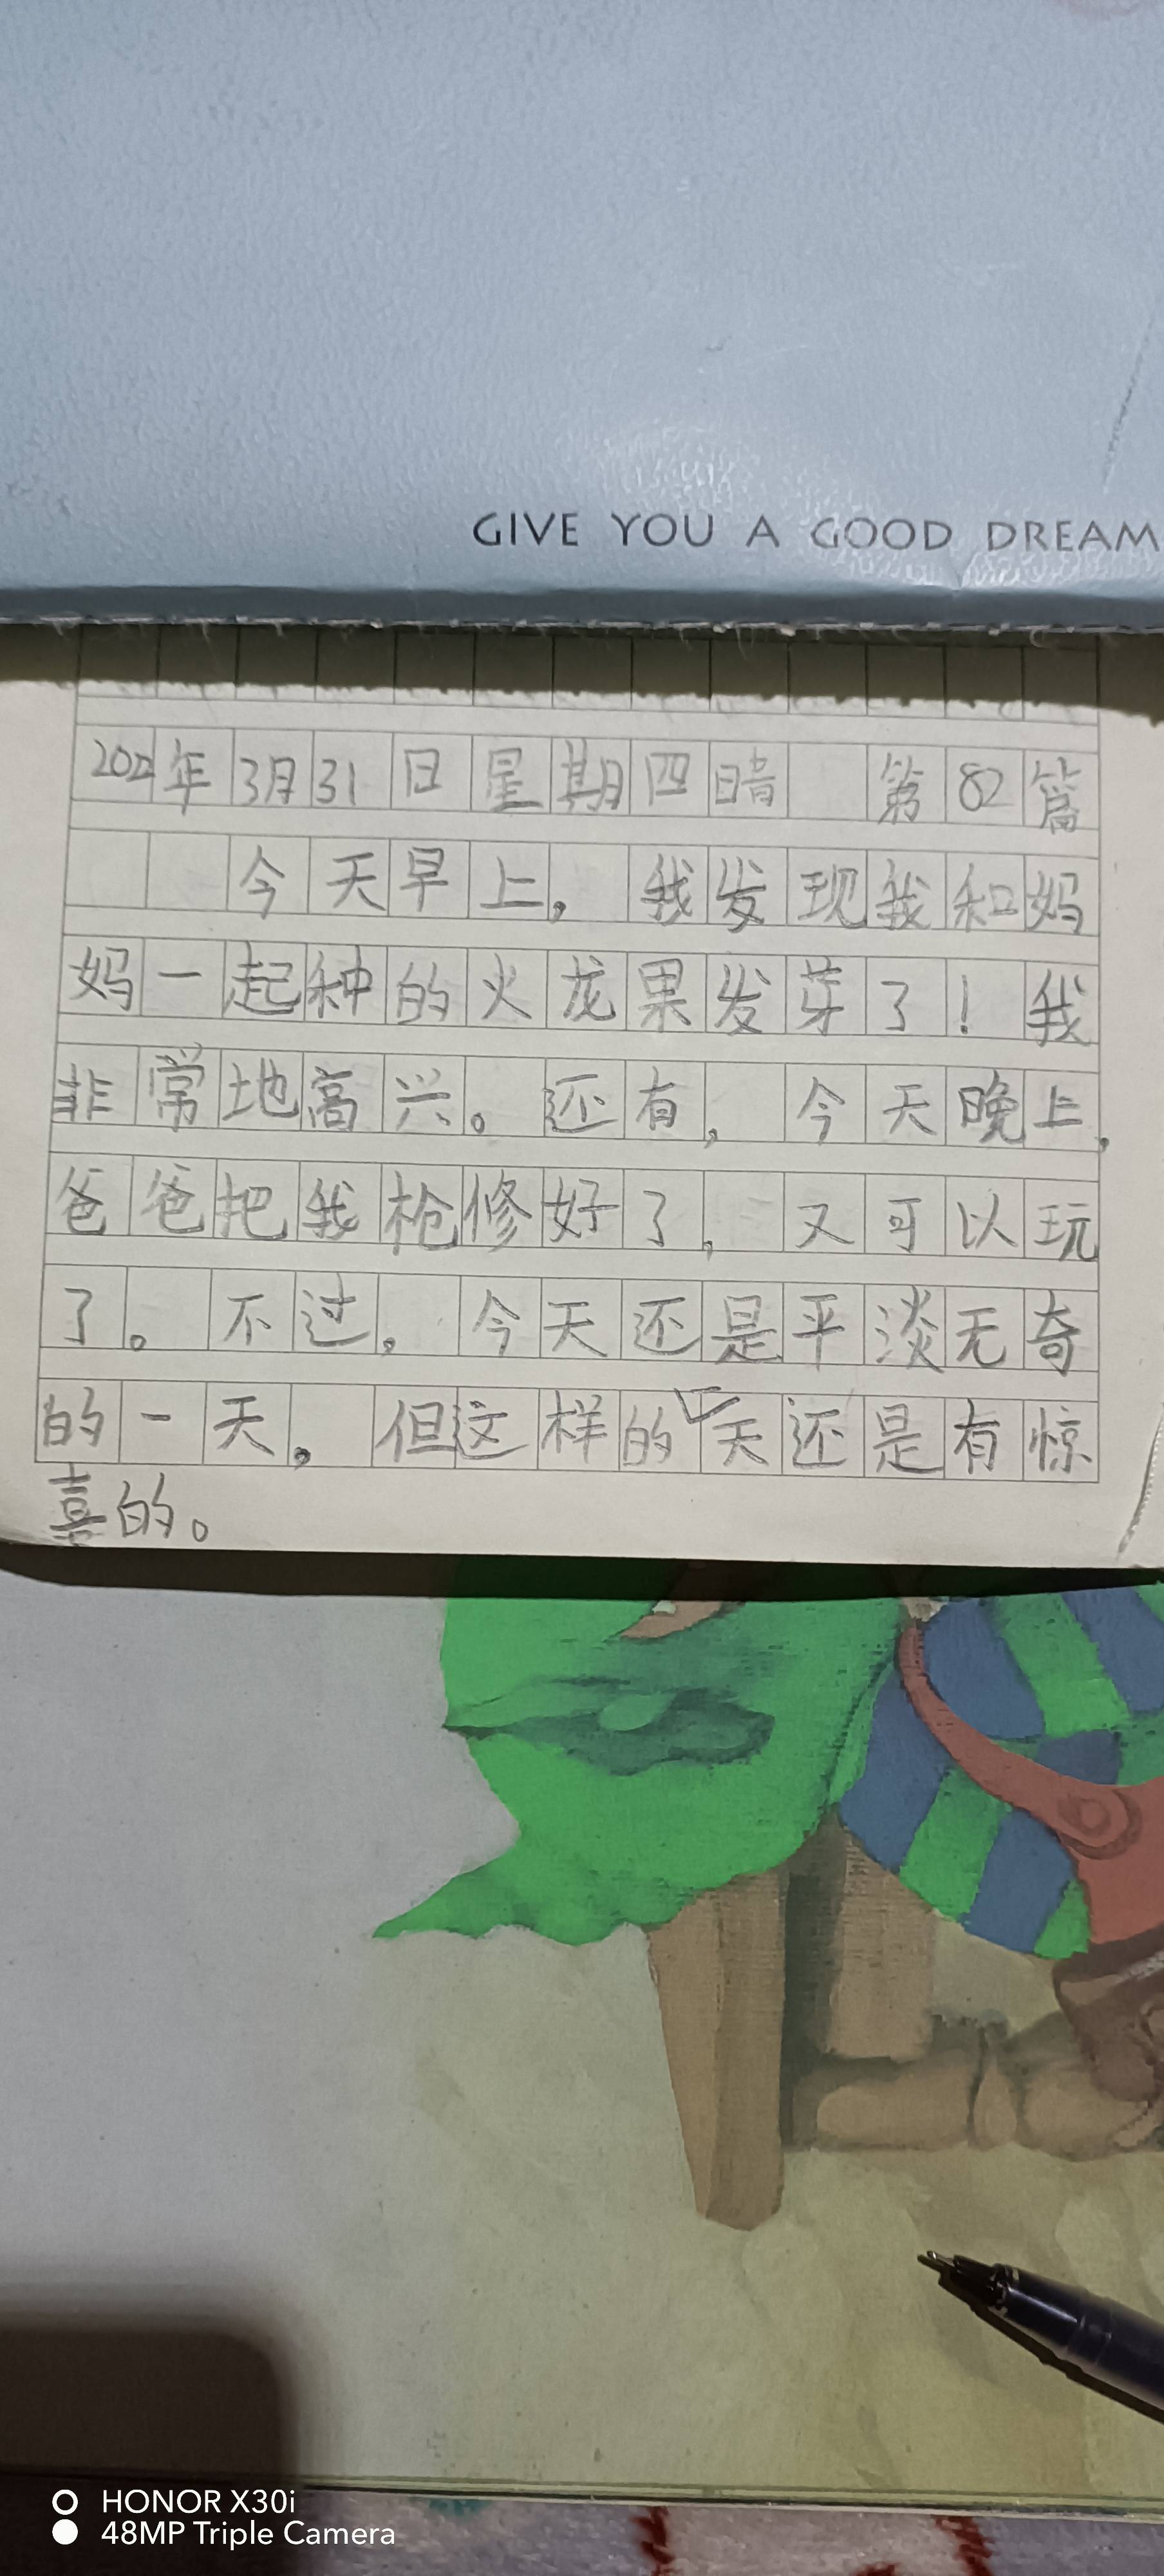 GIVE YOU A GOOD DREAM
2022年3月31日星期四晴 第82篇
今天早上，我发现我和妈
妈一起种的火龙果发芽了！我
非常地高兴。还有，今天晚上，
爸爸把我枪修好了，又可以玩
了。不过，今天还是平淡无奇
的一天，但这样的一天还是有惊
喜的。
HONOR X30i
48MP Triple Camera